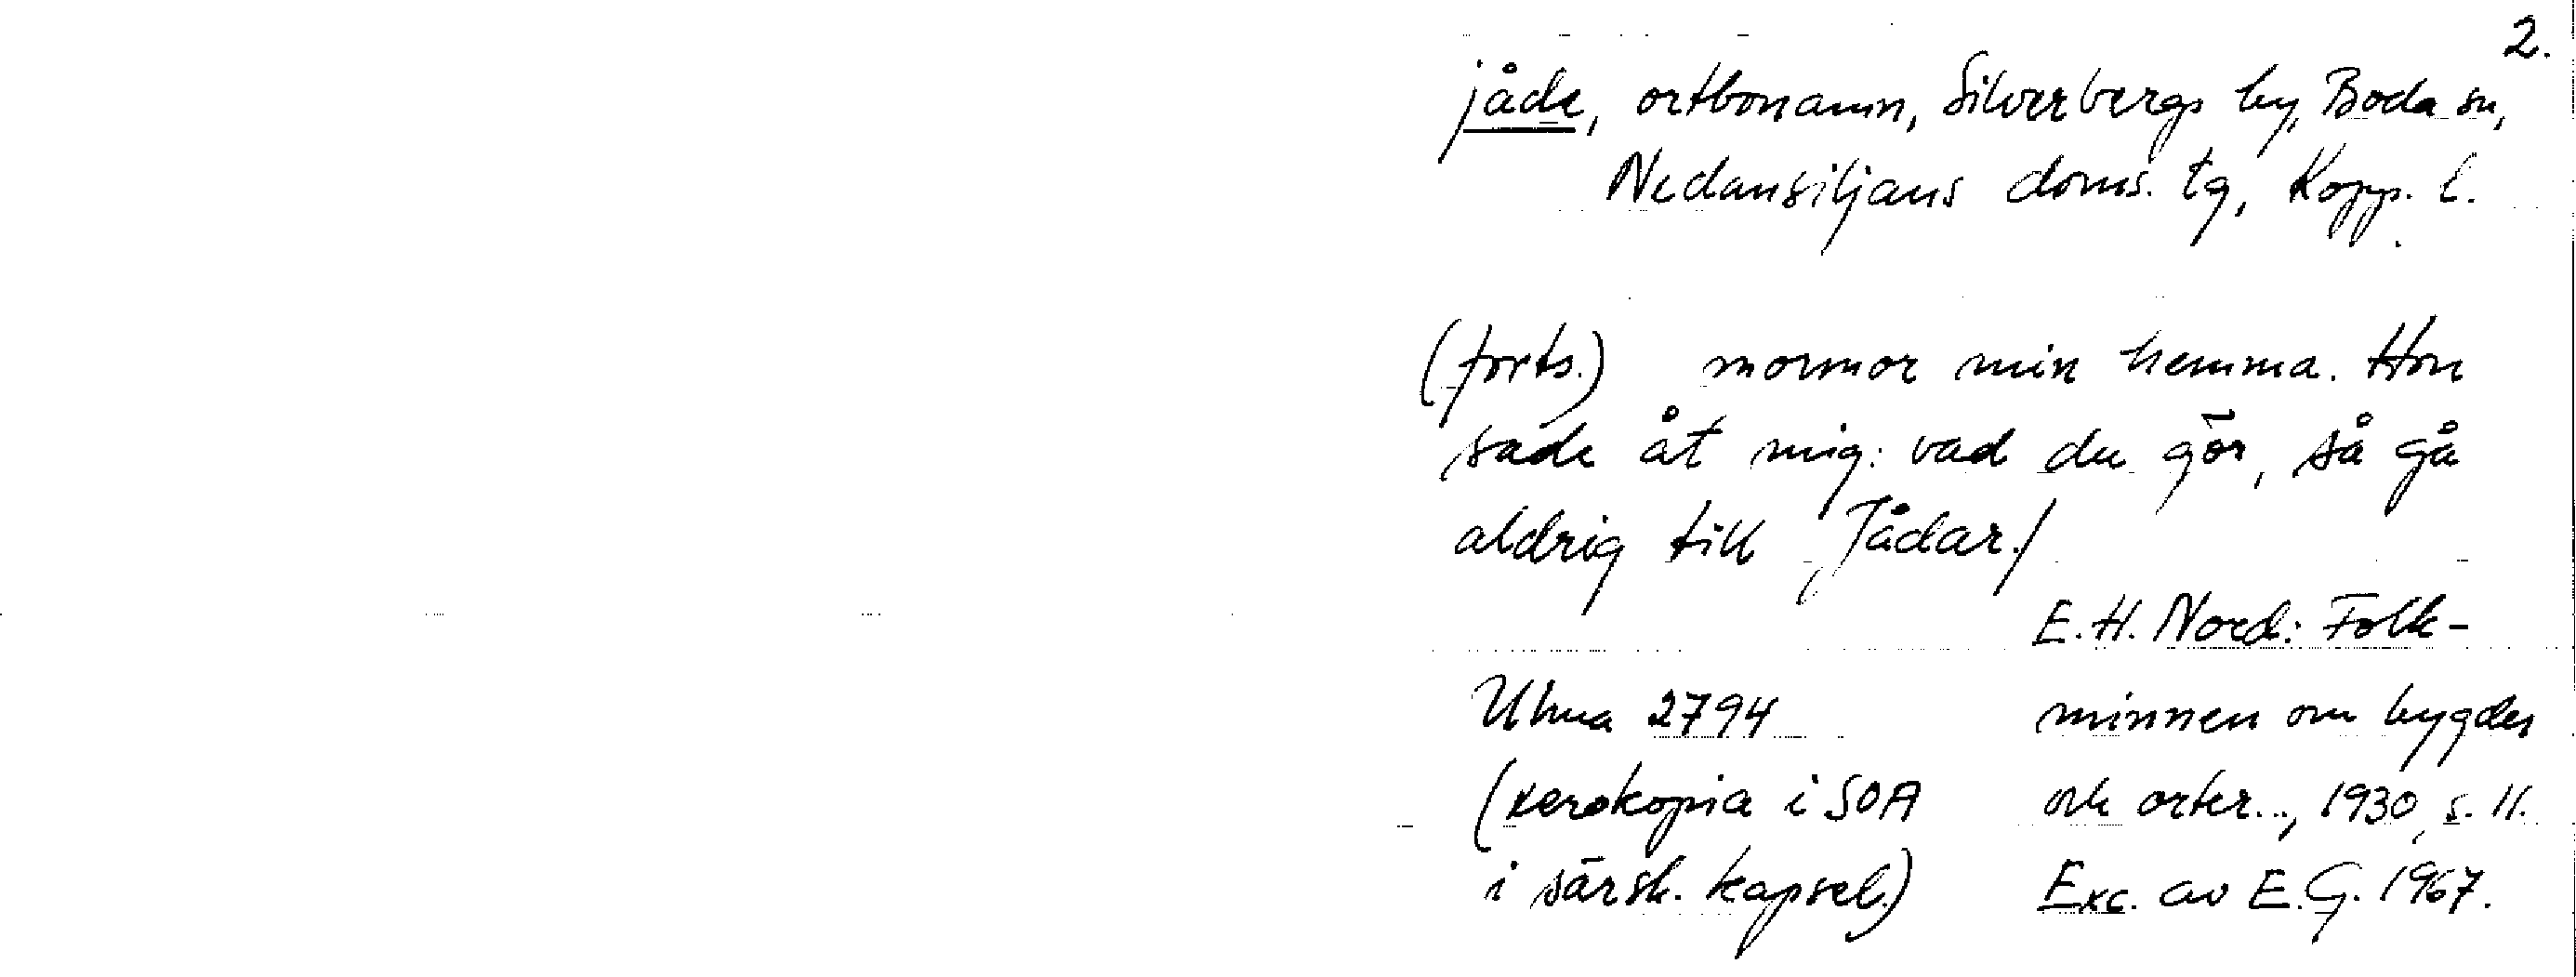 2.
jåde, ortbonamn, Silverbergs by, Boda sn,
Nedansiljans doms. tg, Kopp. l.
(forts.) mormor min hemma. Hon
sade åt mig: vad du gör, så gå
aldrig till Jådar./
E. H. Nord: Folk-
Ulma 2794
minnen om bygder
(xerokopia i SOA
och orter.., 1930, s. 11.
i särsk. kapsel.)
Exc. av E. G. 1967.